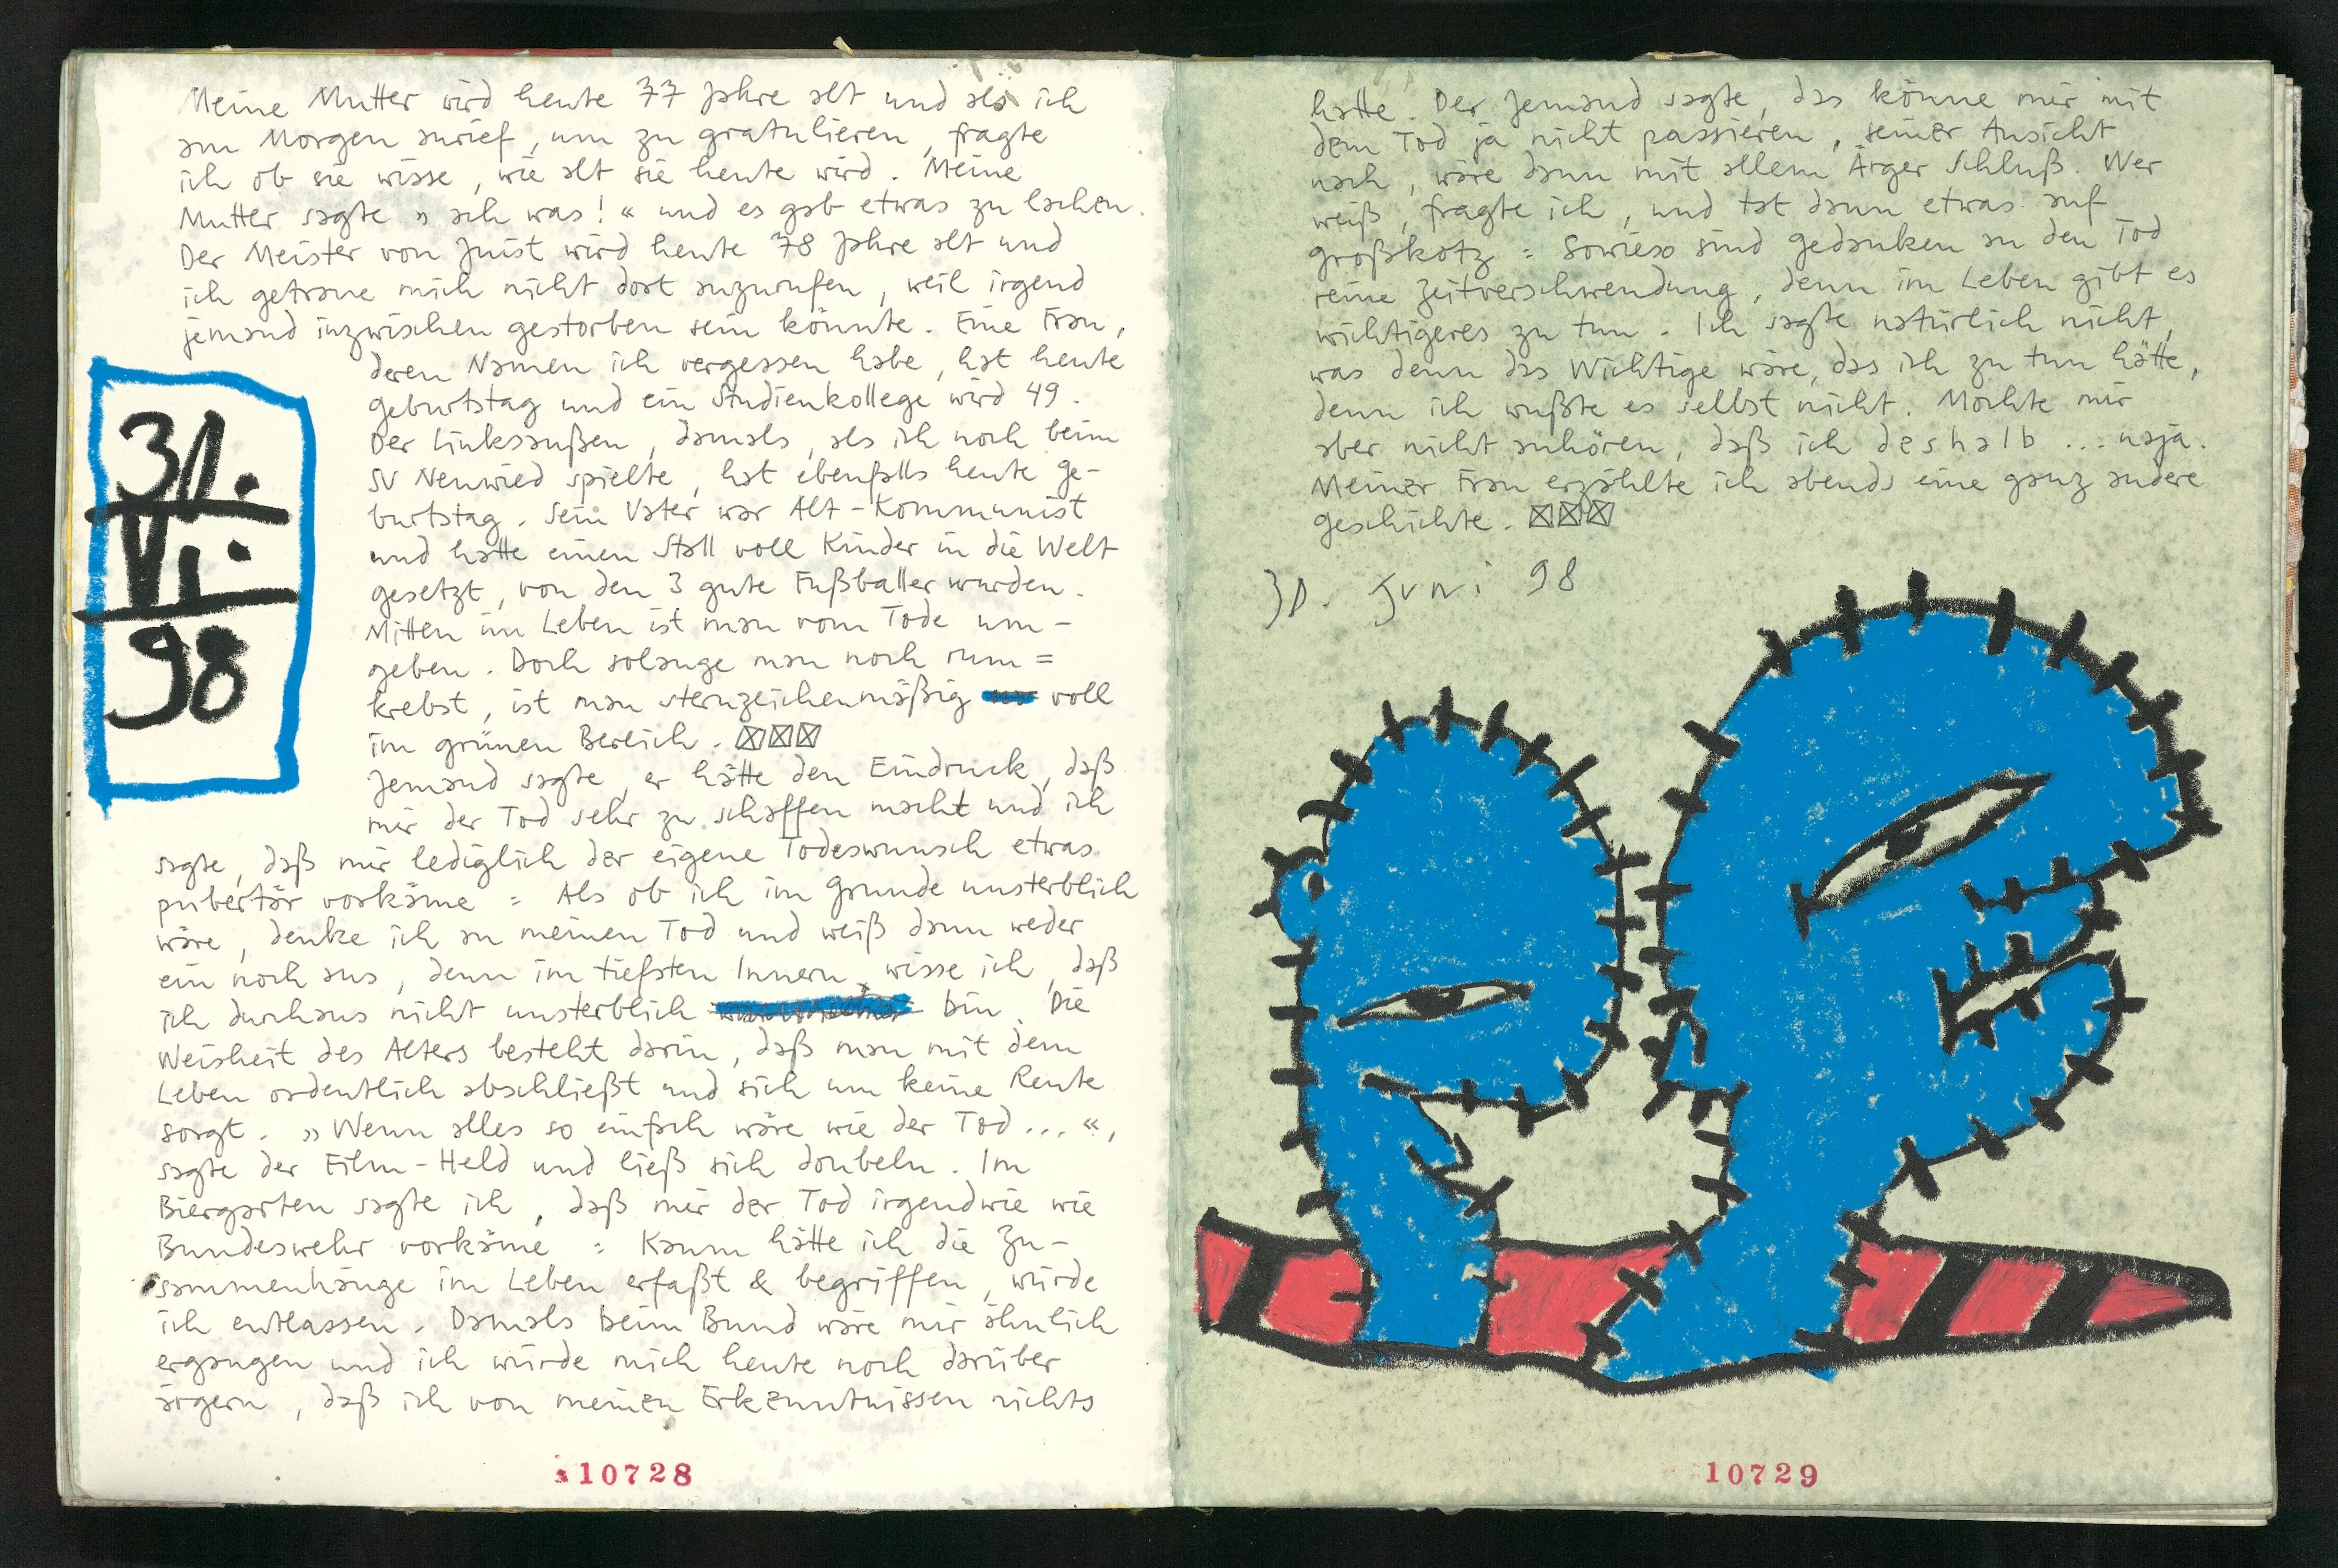 Meine Mutter wird heute 77 Jahre alt und als ich
am Morgen anrief, um zu gratulieren, fragte
ich ob sie wisse, wie alt sie heute wird. Meine
Mutter sagte » ach was! « und es gab etwas zu lachen.
Der Meister von Juist wird heute 78 Jahre alt und
ich getraue mich nicht dort anzurufen, weil irgend
jemand inzwischen gestorben sein könnte. Eine Frau,
deren Namen ich vergessen habe, hat heute
Geburtstag und ein Studienkollege wird 49.
Der Linksaußen, damals, als ich noch beim
SV Neuwied spielte, hat ebenfalls heute Ge-
burtstag. Sein Vater war Alt-Kommunist
und hatte einen Stall voll Kinder in die Welt
gesetzt, von den 3 gute Fußballer wurden.
Mitten im Leben ist man vom Tode um-
geben. Doch solange man noch rum=
krebst, ist man sternzeichenmäßig voll
im grünen Bereich.
Jemand sagte, er hätte den Eindruck, daß
mir der Tod sehr zu schaffen macht und ich
sagte, daß mir lediglich der eigene Todeswunsch etwas
pubertär vorkäme = Als ob ich im Grunde unsterblich
wäre, denke ich an meinen Tod und weiß dann weder
ein noch aus, denn im tiefsten Innern, wisse ich, daß
ich durchaus nicht unsterblich bin. Die
Weisheit des Alters besteht darin, daß man mit dem
Leben ordentlich abschließt und sich um keine Rente
sorgt. » Wenn alles so einfach wäre wie der Tod ... «,
sagte der Film-Held und ließ sich doubeln. Im
Biergarten sagte ich, daß mir der Tod irgendwie wie
Bundeswehr vorkäme = Kaum hätte ich die Zu-
sammenhänge im Leben erfaßt & begriffen, würde
ich entlassen. Damals beim Bund wäre mir ähnlich
ergangen und ich würde mich heute noch darüber
ärgern, daß ich von meinen Erkenntnissen nichts
30.
VI.
98
10728
hatte. Der Jemand sagte, das könne mir mit
dem Tod ja nicht passieren, seiner Ansicht
nach, wäre dann mit allem Ärger Schluß. Wer
weiß, fragte ich, und tat dann etwas auf
großkotz = Sowieso sind Gedanken an den Tod
reine Zeitverschwendung, denn im Leben gibt es
wichtigeres zu tun. Ich sagte natürlich nicht,
was denn das Wichtige wäre, das ich zu tun hätte,
denn ich wußte es selbst nicht. Möchte mir
aber nicht anhören, daß ich deshalb ... naja.
Meiner Frau erzählte ich abends eine ganz andere
Geschichte.
30. Juni 98
10729